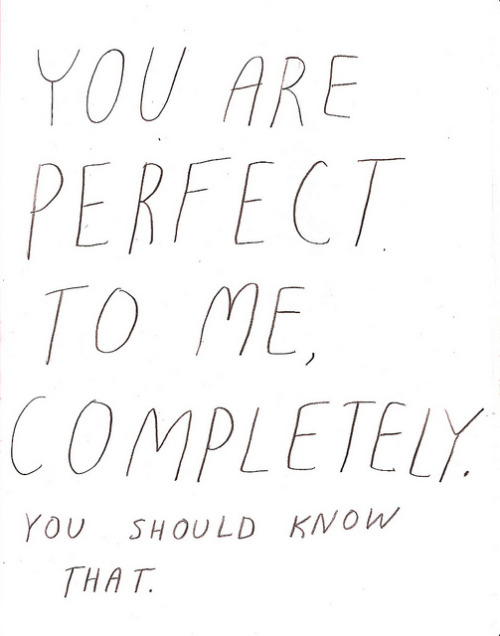 YOU ARE
PERFECT
TO ME,
COMPLETELY.
YOU SHOULD KNOW
THAT.